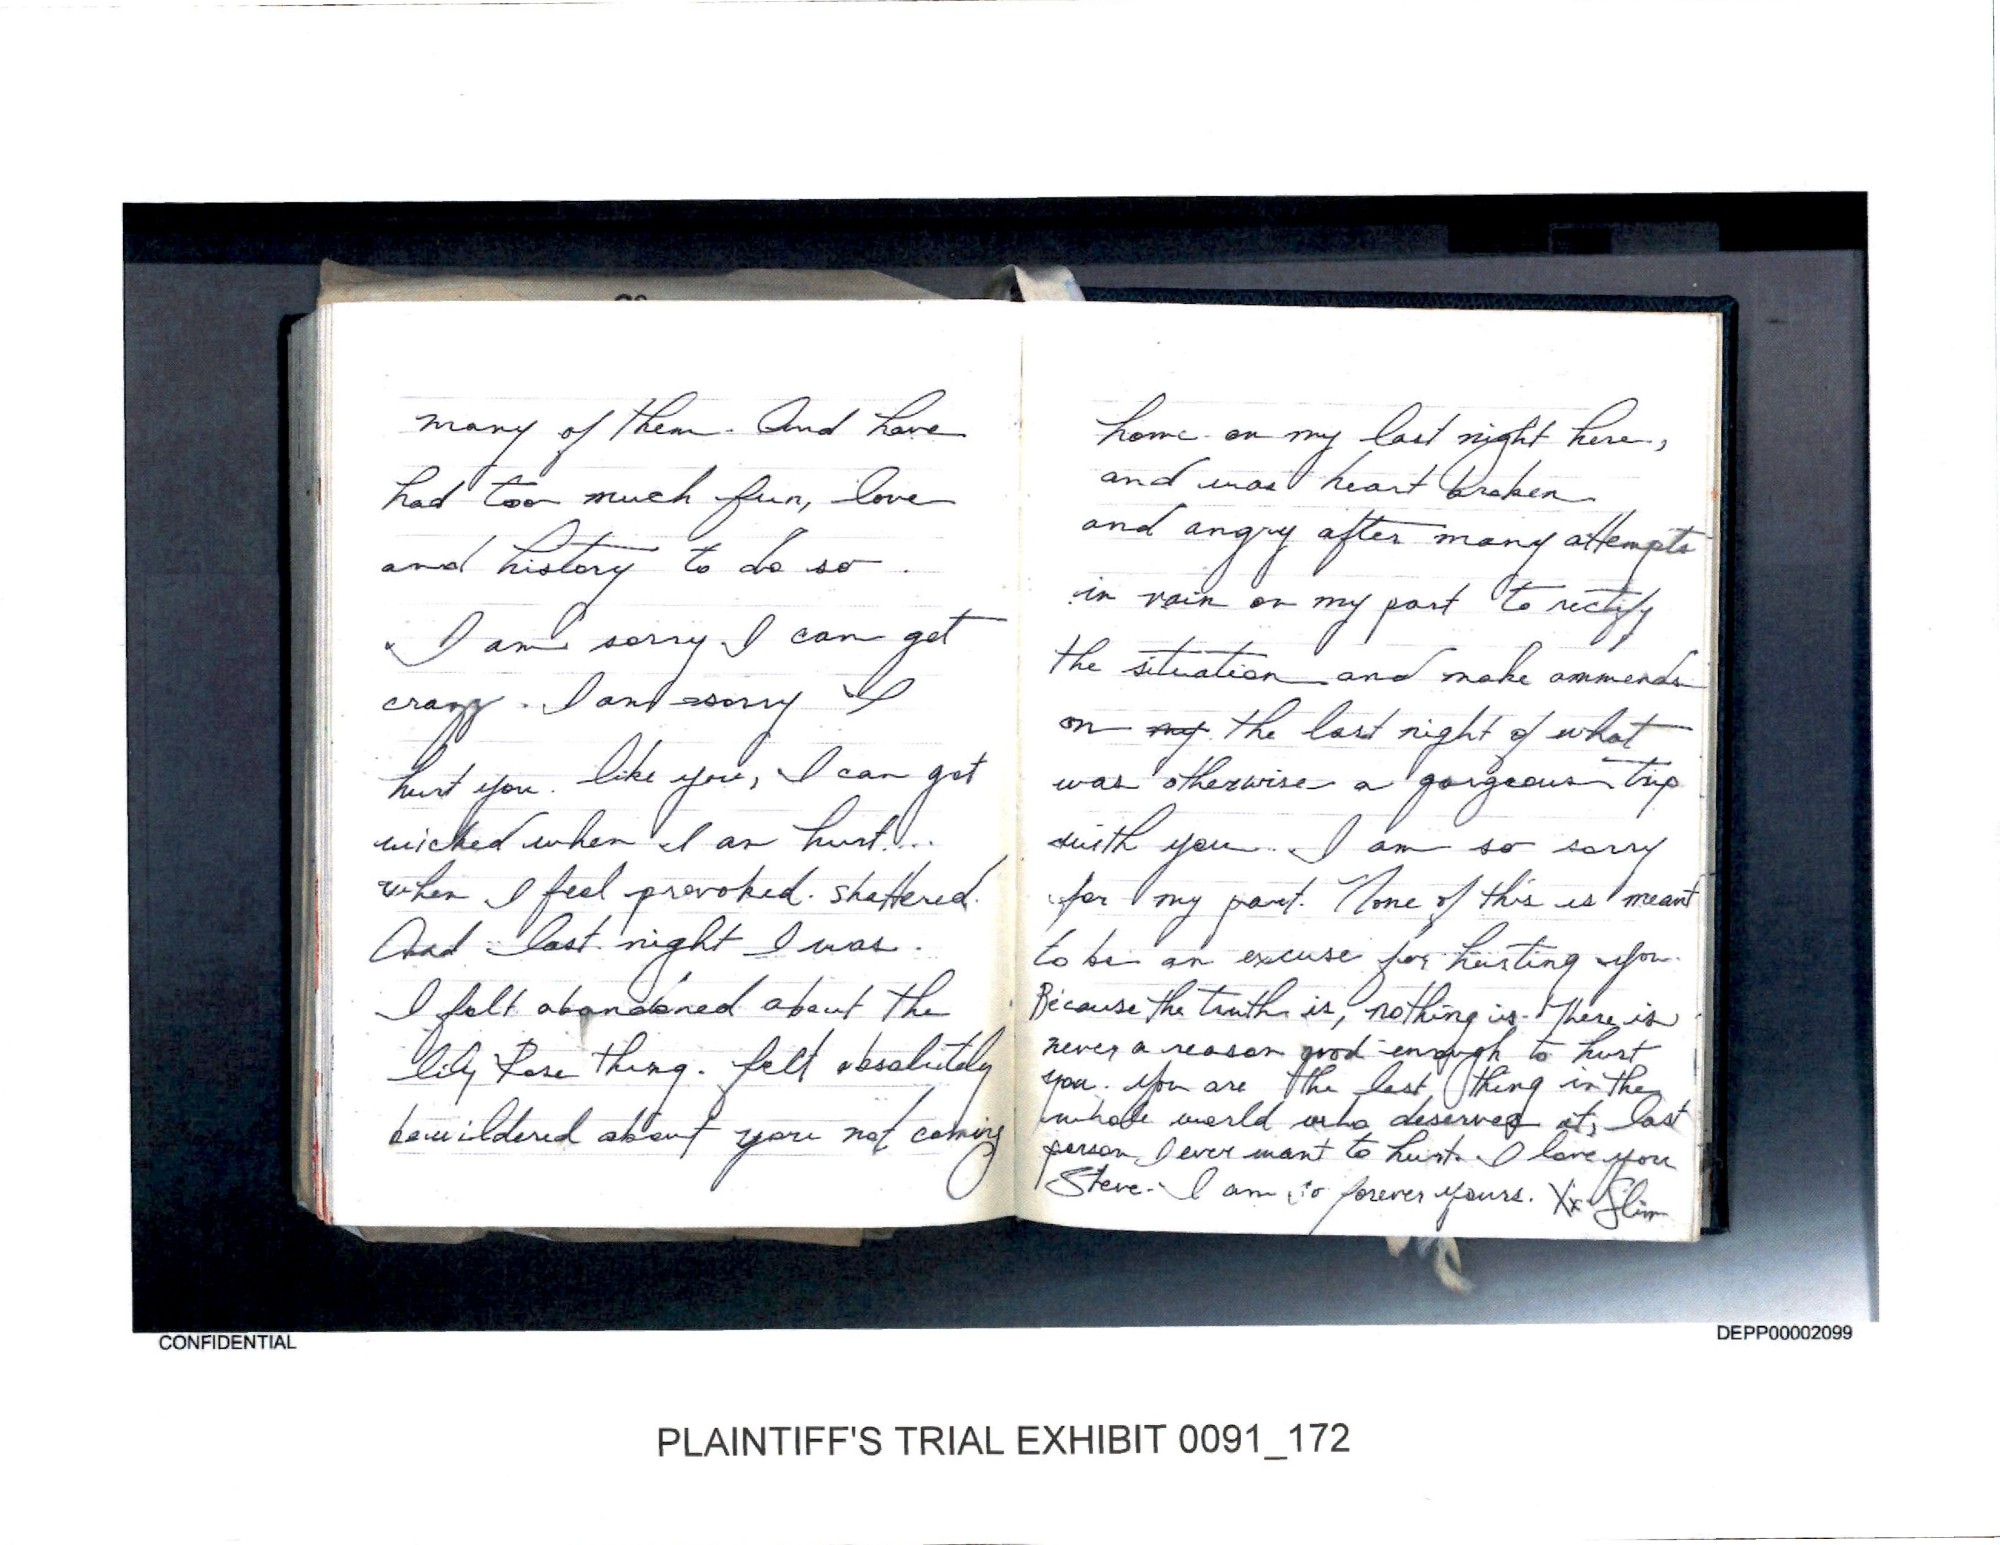 many of them. And have
had too much fun, love
and history to do so.
I am sorry I can get
crazy. I am sorry I
hurt you. like you, I can get
wicked when I am hurt...
when I feel provoked. shattered.
And last night I was.
I felt abandoned about the
lily Rose thing. felt absolutely
bewildered about you not coming
home on my last night here,
and was heart broken
and angry after many attempts
in vain on my part to rectify
the situation and make ammends
on my the last night of what
was otherwise a gorgeous trip
with you. I am so sorry
for my part. None of this is meant
to be an excuse for hurting you.
Because the truth is, nothing is. There is
never a reason good enough to hurt
you. You are the last thing in the
whole world who deserves it, last
person I ever want to hurt. I love you
Steve. I am so forever yours. Xx Slim
CONFIDENTIAL
DEPP00002099
PLAINTIFF'S TRIAL EXHIBIT 0091_172